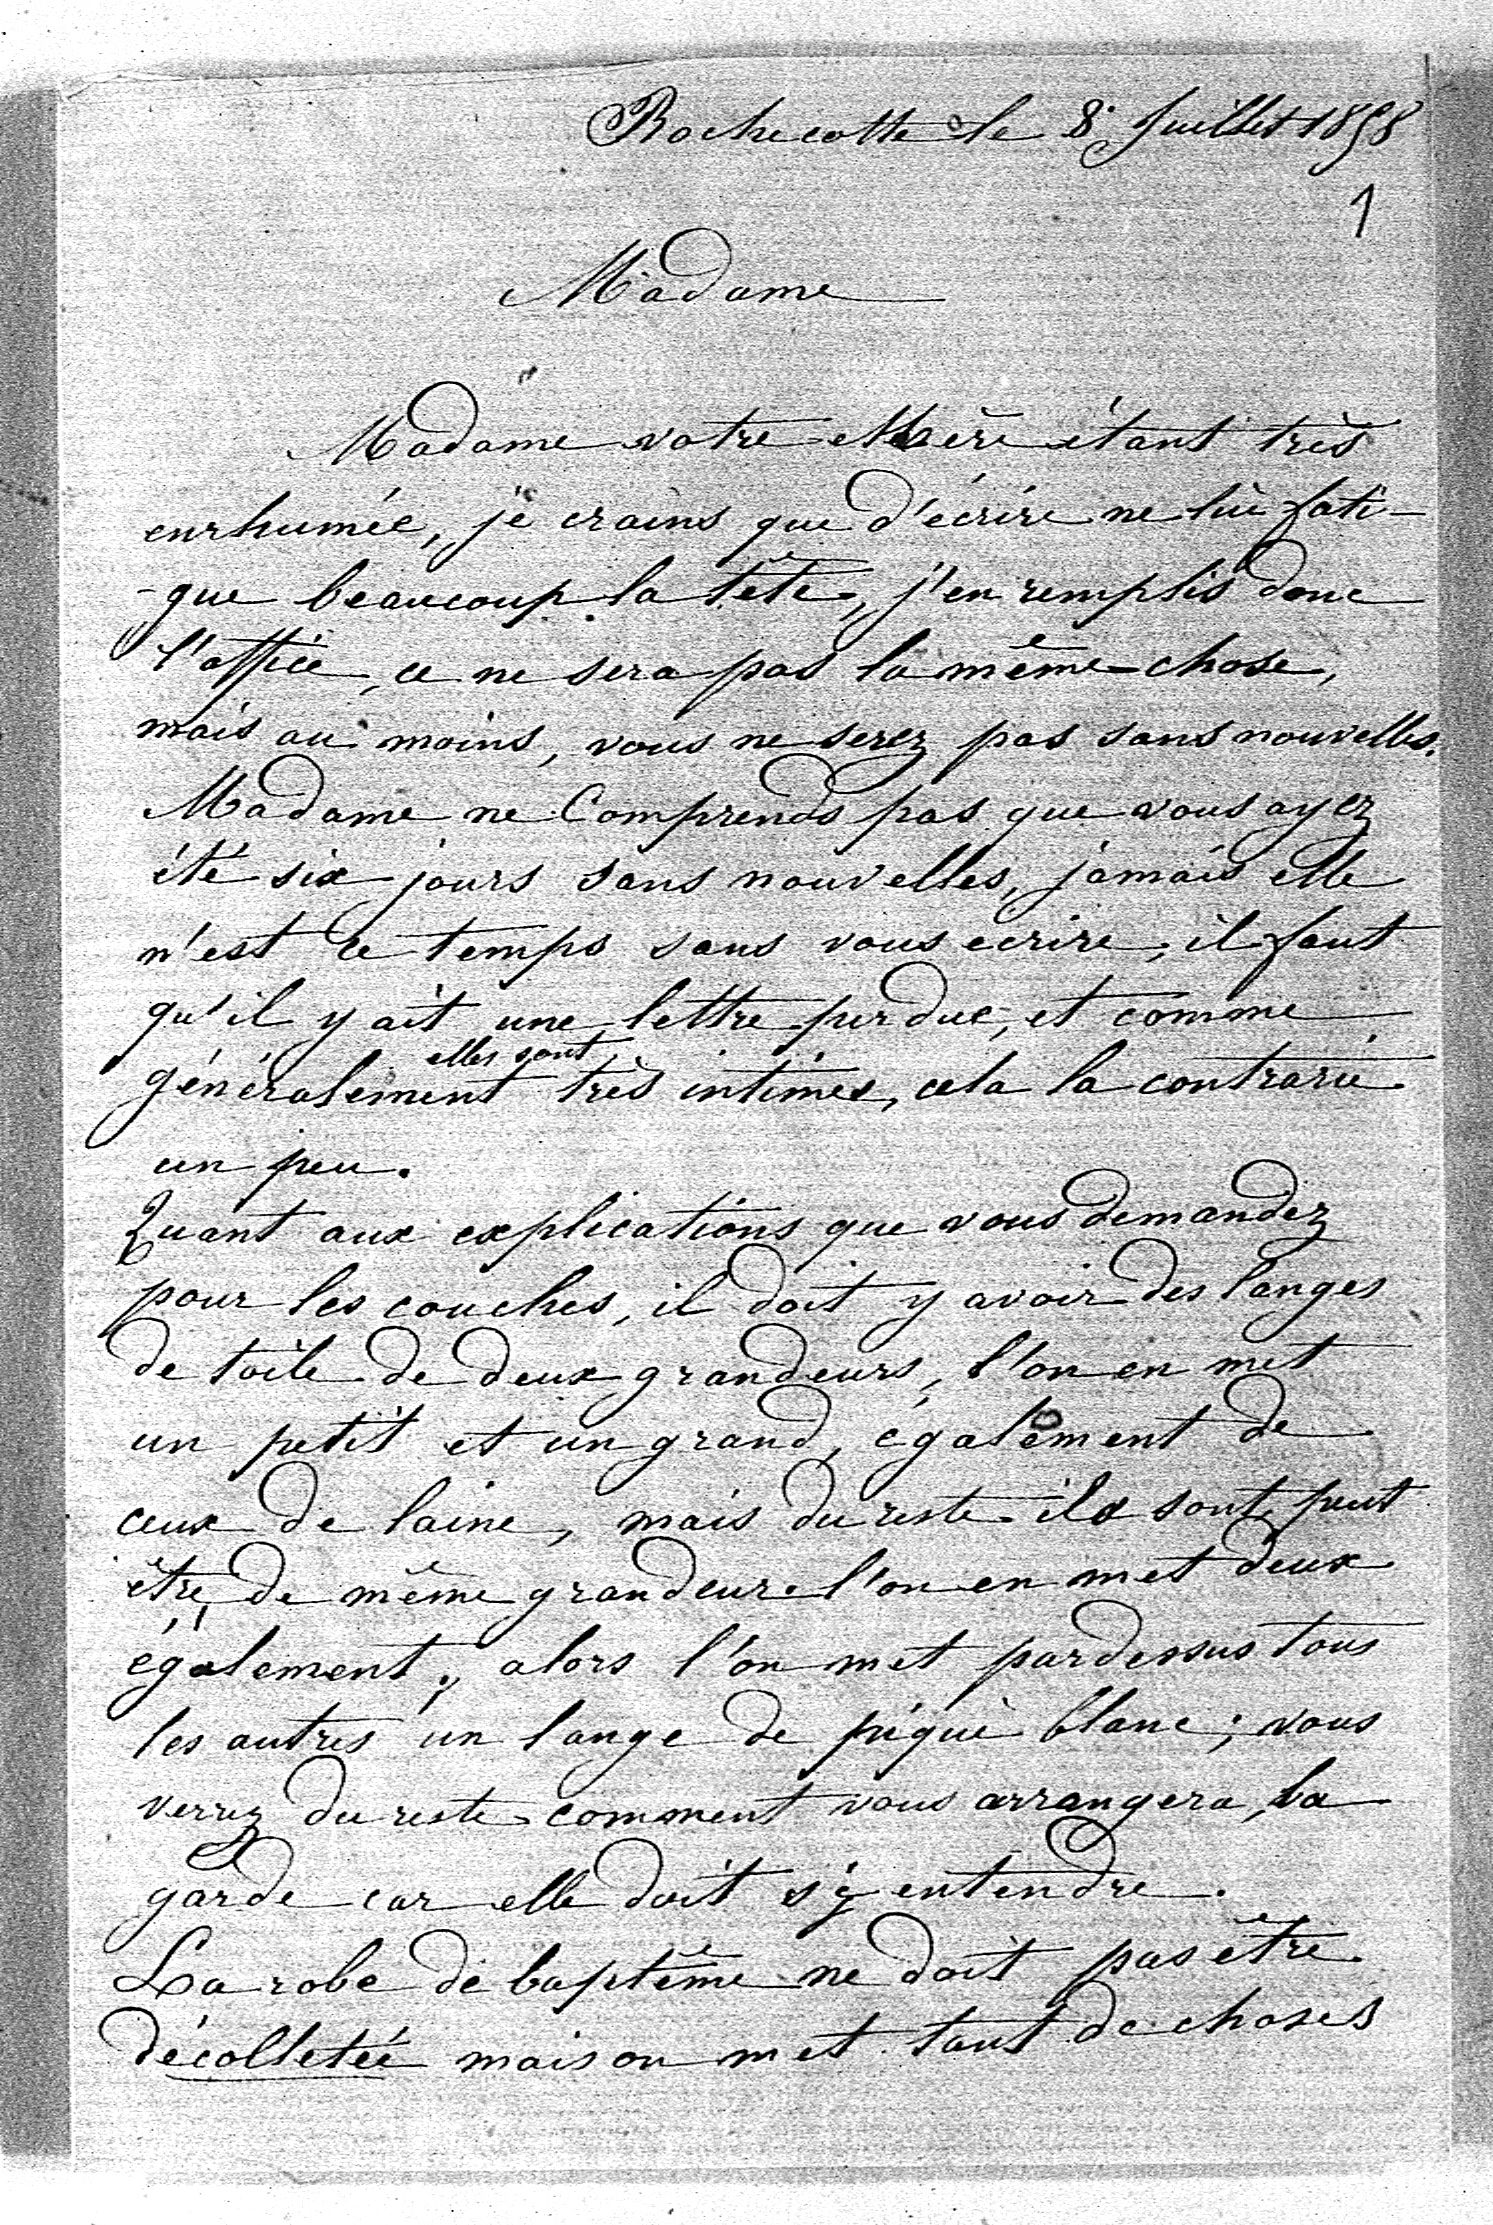 Rochecotte le 8 Juillet 1898
1
Madame
Madame votre Mère étant très
enrhumée, je crains que d'écrire ne lui fati-
-gue beaucoup la tête, j'en remplis donc
l'office, ce ne sera pas la même chose,
mais au moins, vous ne serez pas sans nouvelles.
Madame ne Comprends pas que vous ayez
été six jours sans nouvelles, jamais elle
n'est ce temps sans vous ecrire, il faut
qu'il y ait une lettre perdue, et comme
elles sont
généralement très intimes, cela la contrarie
un peu.
Quant aux explications que vous demandez
pour les couches, il doit y avoir des langes
de toile de deux grandeurs, l'on en met
un petit et un grand, également de
ceux de laine, mais du reste ils sont peut
être de même grandeur l'on en met deux
également, alors l'on met pardessus tous
les autres un lange de piqué blanc; vous
verrez du reste comment vous arrangera la
garde car elle doit s'y entendre.
La robe de baptême ne doit pas être
décolletée mais on met tant de choses